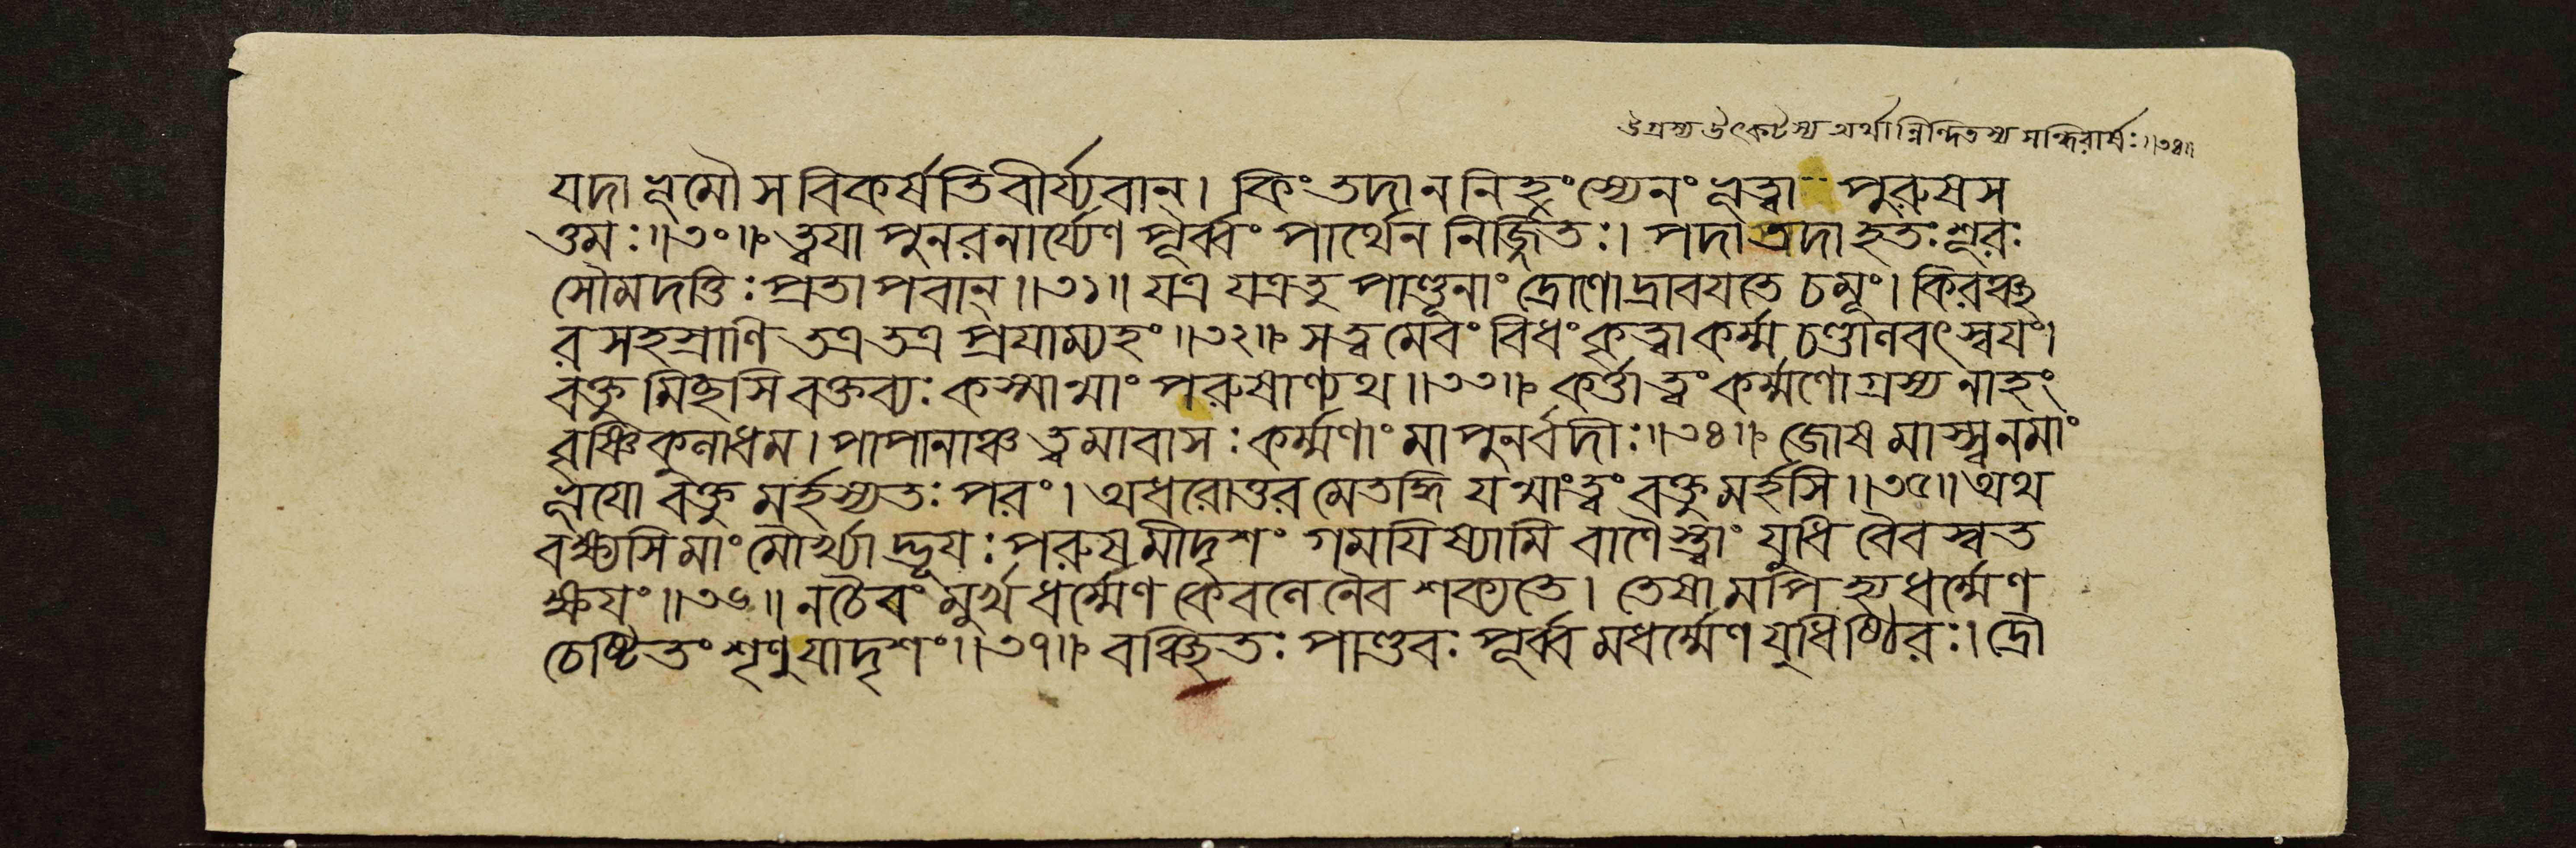 উগ্রস্য উৎকটস্য অর্থান্নিন্দিতস্য সন্ধিরার্ষঃ॥৩৪॥
যদা ভূমৌ স বিকর্ষতি বীর্য্যবান্। কিং তদা ন নিহংস্যেনং ভূত্বা পুরুষস
ত্তমঃ॥৩০॥ ত্বয়া পুনরনার্য্যেণ পূর্ব্বং পার্থেন নির্জ্জিতঃ। যদা তদা হতঃ শূরঃ
সৌমদত্তিঃ প্রতাপবান্॥৩১॥ যত্র যত্র তু পাণ্ডূনাং দ্রোণো দ্রাবয়তে চমূং। কিরঞ্ছ
রসহস্রাণি তত্র তত্র প্রয়াম্যহং॥৩২॥ স ত্বমেবং বিধং কৃত্বা কর্ম্ম চণ্ডালবৎ স্বয়ং।
বক্তুমিচ্ছসি বক্তব্যঃ কস্মান্মাং পরুষাণ্যথ॥৩৩॥ কর্ত্তা ত্বং কর্ম্মণোগ্রস্য নাহং
বৃষ্ণিকুলাধম। পাপানাঞ্চ ত্বমাবাসঃ কর্ম্মণাং মা পুনর্বদীঃ॥৩৪॥ জোষমাস্স্ব ন মাং
ভূয়ো বক্তুমর্হস্যতঃ পরং। অধরোত্তরমেতদ্ধি যন্মাং ত্বং বক্তুমর্হসি॥৩৫॥ অথ
বক্ষ্যসি মাং মৌর্খ্যাদ্ভূয়ঃ পরুষমীদৃশং গময়িষ্যামি বাণৈস্ত্বাং যুধি বৈবস্বত
ক্ষয়ং॥৩৬॥ ন চৈবং মুর্খ ধর্ম্মেণ কেবলেনৈব শক্যতে। তেষামপি হ্যধর্ম্মেণ
চেষ্টিতং শৃণু যাদৃশং॥৩৭॥ বঞ্চিতঃ পাণ্ডবঃ পূর্ব্বমধর্ম্মেণ যুধিষ্ঠিরঃ। দ্রৌ